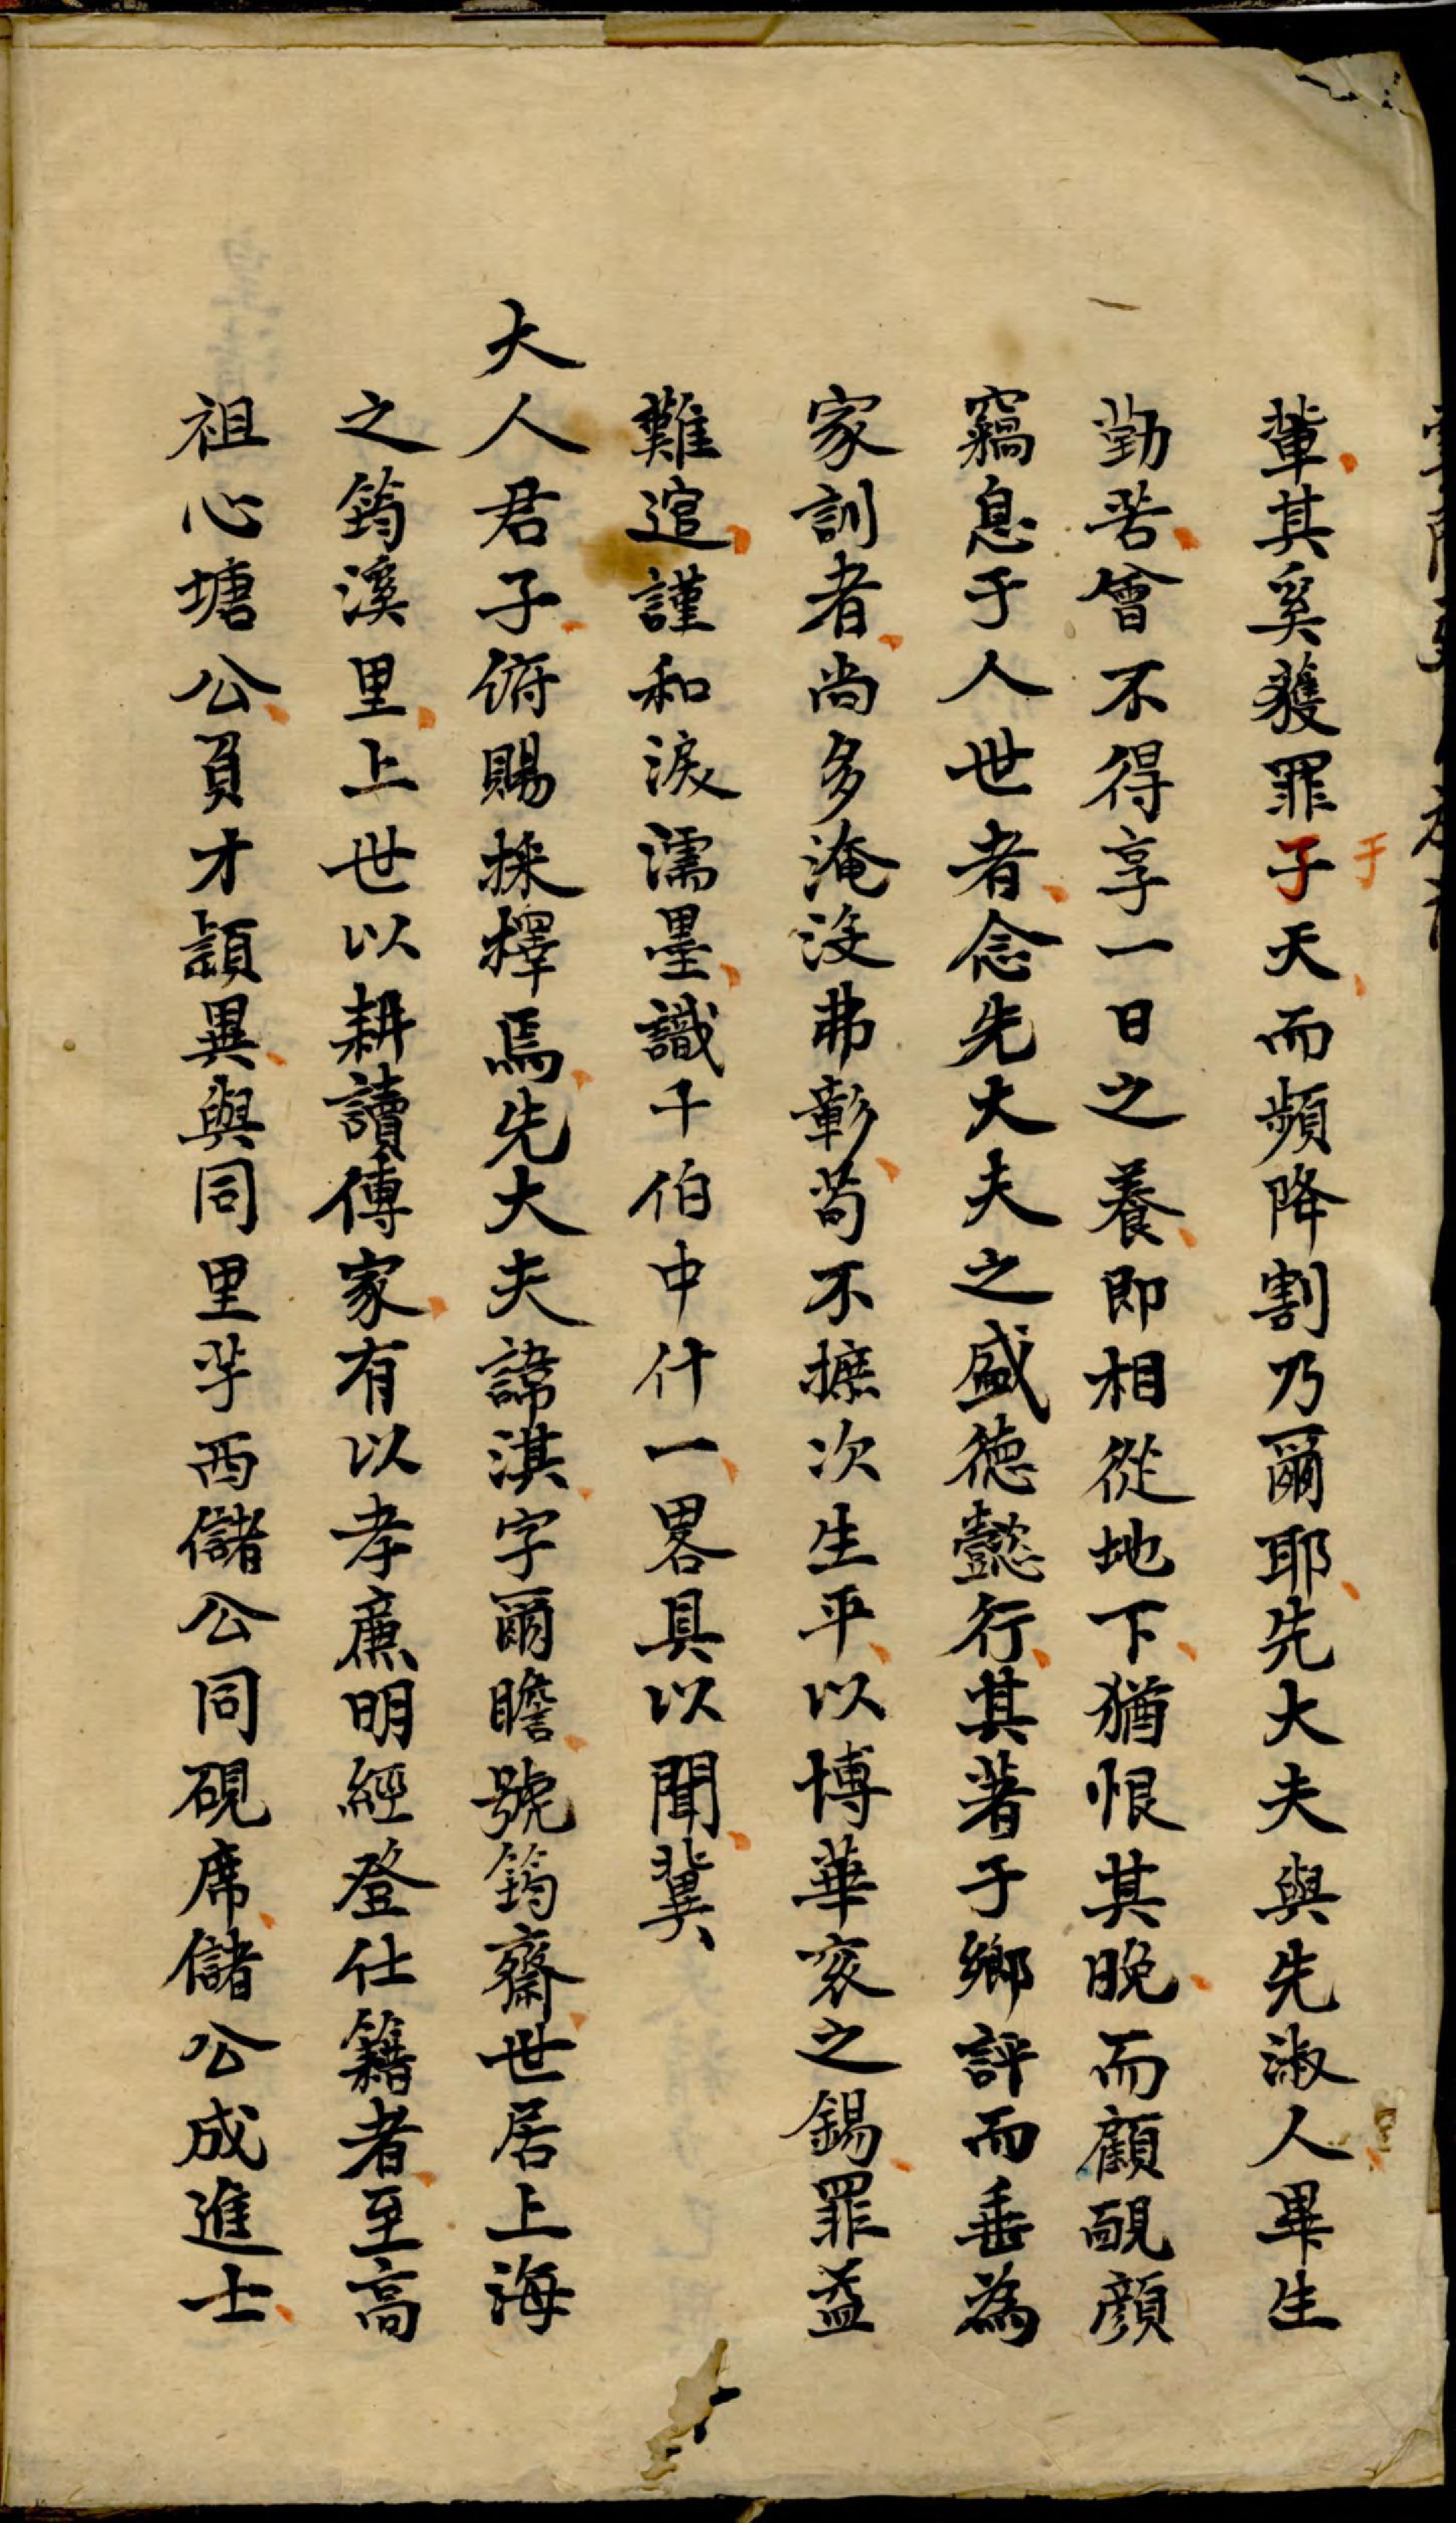 輩其奚獲罪于天而頻降割乃爾耶先大夫與先淑人畢生
勤苦曾不得享一日之養即相從地下猶恨其晚而顧靦顏
竊息于人世者念先大夫之盛德懿行其著于鄉評而垂為
家訓者尚多淹沒弗彰苟不摭次生平以博華衮之錫罪益
難逭謹和淚濡墨識千伯中什一畧具以聞冀
大人君子俯賜採擇焉先大夫諱淇字爾瞻號筠齋世居上海
之筠溪里上世以耕讀傳家有以孝廉明經登仕籍者至高
祖心塘公負才頴異與同里芋西儲公同硯席儲公成進士